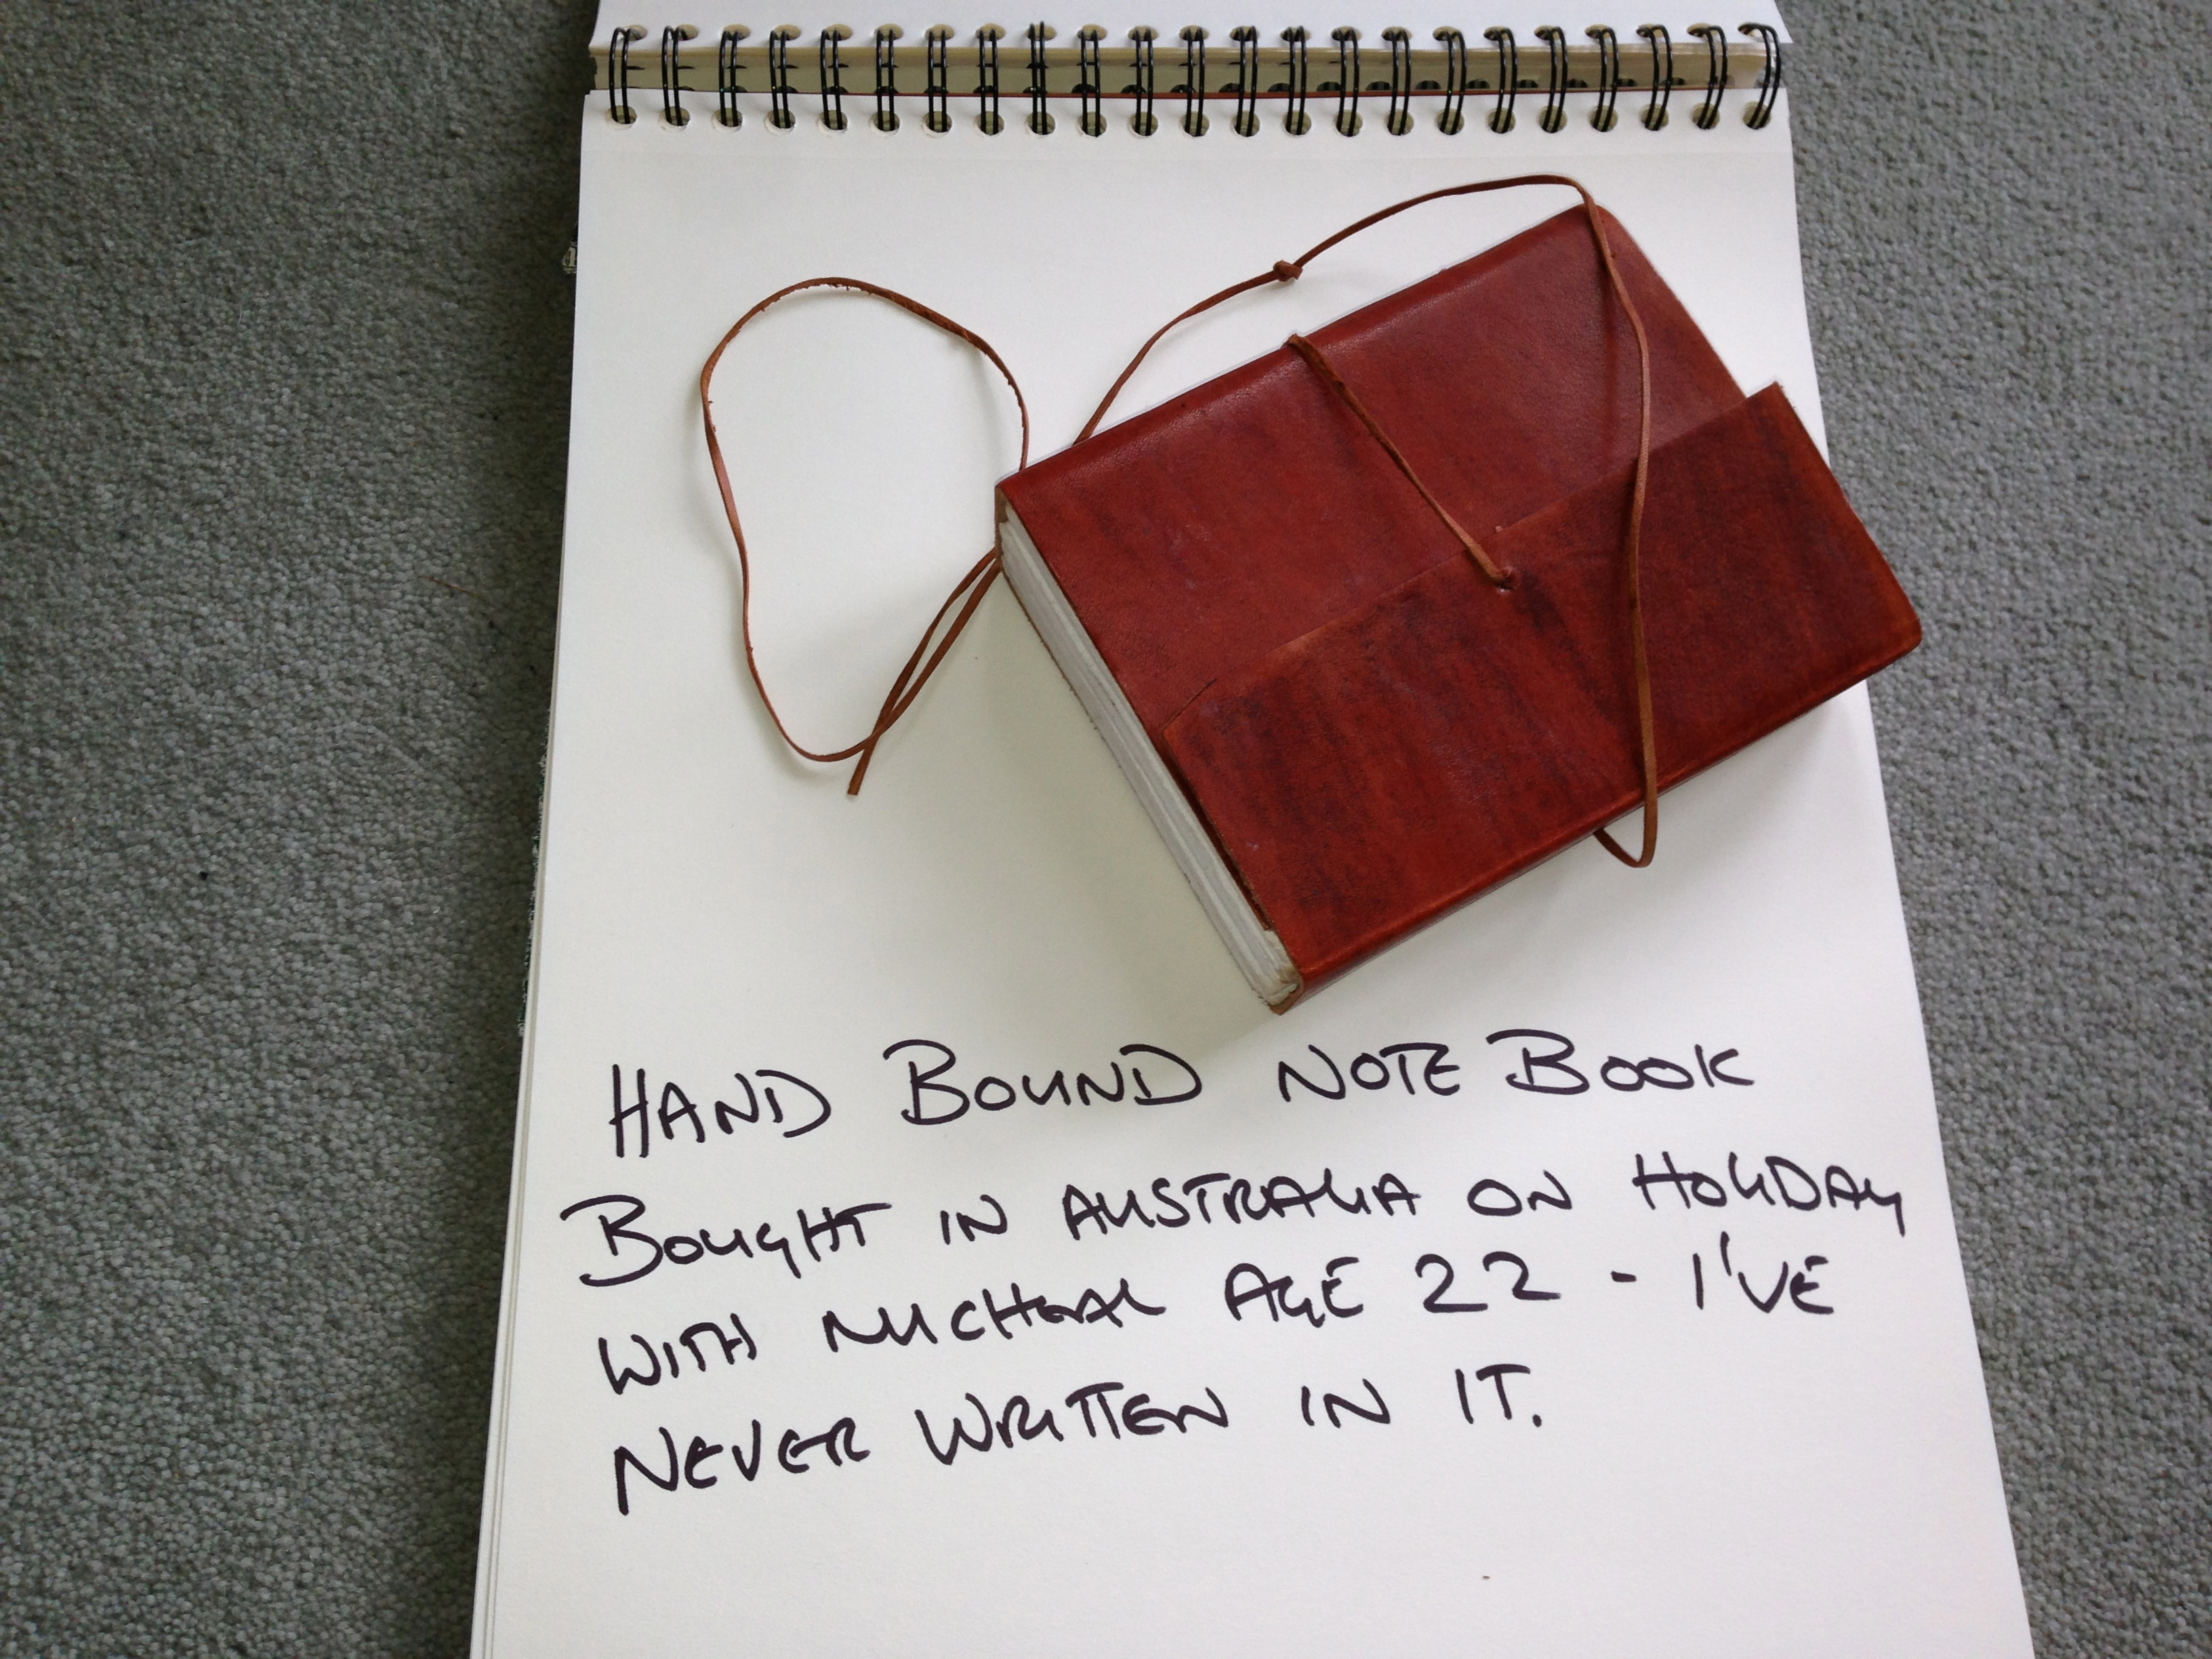 HAND BOUND NOTE BOOK
BOUGHT IN AUSTRALIA ON HOLIDAY
WITH MICHEAL AGE 22 - I'VE
NEVER WRITTEN IN IT.